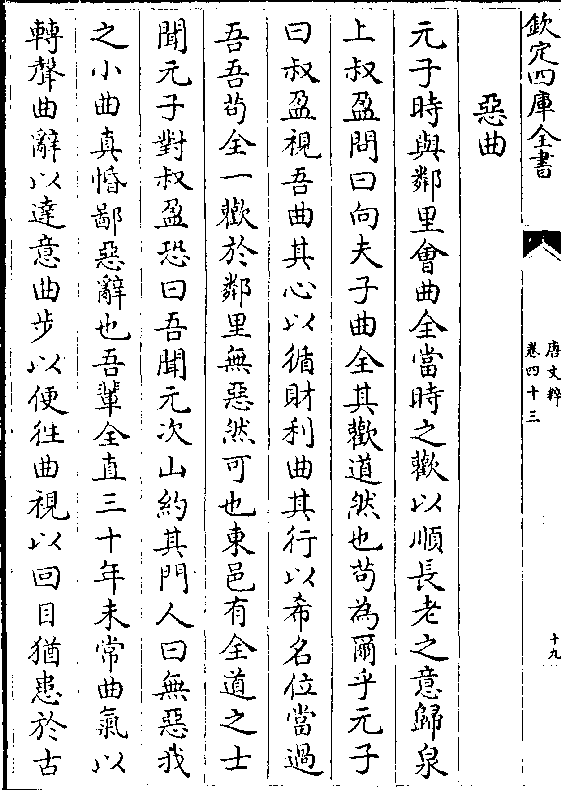 欽定四庫全書
唐文粹
卷四十三
十九
惡曲
元子時與鄰里會曲全當時之歡以順長老之意歸泉
上叔盈問曰向夫子曲全其歡道然也苟為爾乎元子
曰叔盈視吾曲其心以循財利曲其行以希名位當過
吾吾苟全一歡於鄰里無惡然可也東邑有全道之士
聞元子對叔盈恐曰吾聞元次山約其門人曰無惡我
之小曲真惛鄙惡辭也吾輩全直三十年未常曲氣以
轉聲曲辭以達意曲步以便往曲視以回目猶患於古